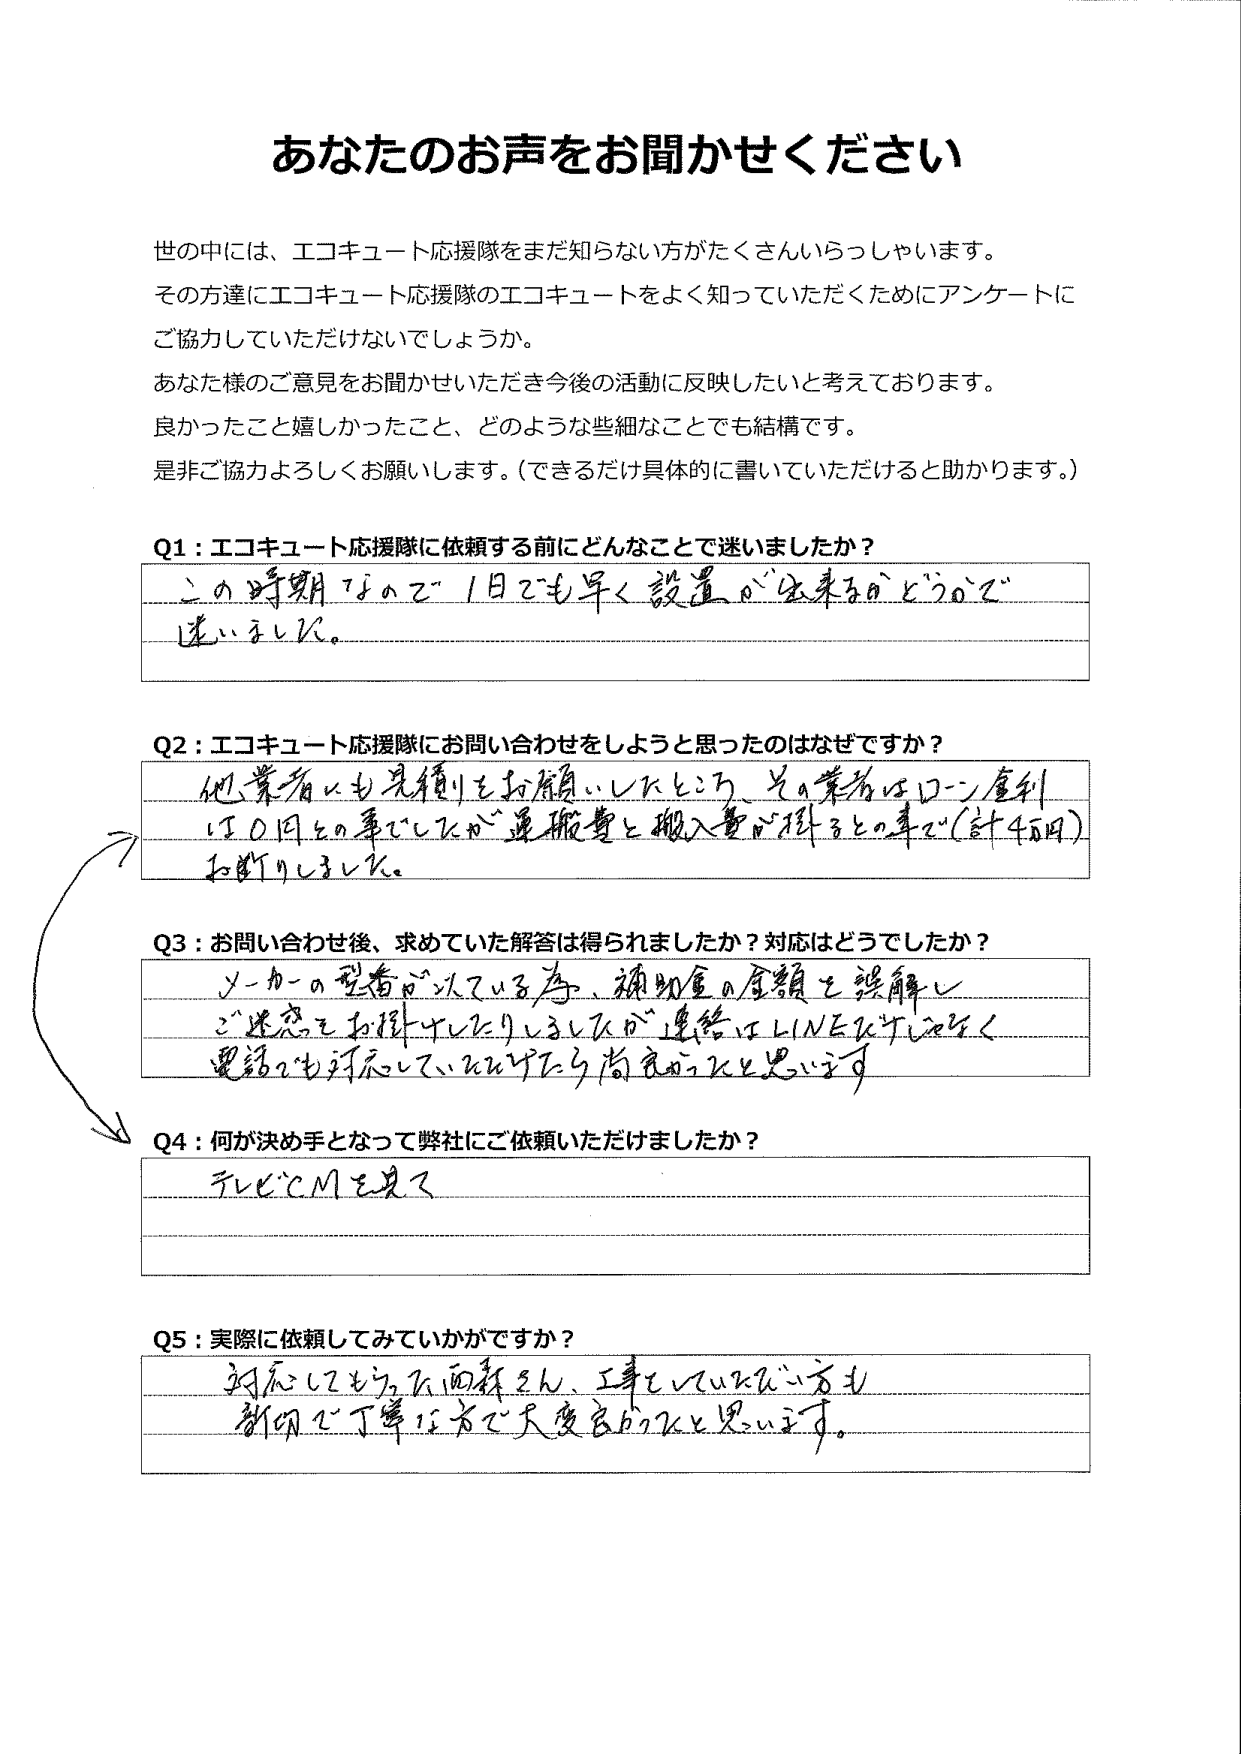 あなたのお声をお聞かせください
世の中には、エコキュート応援隊をまだ知らない方がたくさんいらっしゃいます。
その方達にエコキュート応援隊のエコキュートをよく知っていただくためにアンケートに
ご協力していただけないでしょうか。
あなた様のご意見をお聞かせいただき今後の活動に反映したいと考えております。
良かったこと嬉しかったこと、どのような些細なことでも結構です。
是非ご協力よろしくお願いします。（できるだけ具体的に書いていただけると助かります。）
Q1：エコキュート応援隊に依頼する前にどんなことで迷いましたか？
この時期なので1日でも早く設置が出来るかどうかで
迷いました。
Q2：エコキュート応援隊にお問い合わせをしようと思ったのはなぜですか？
他業者にも見積りをお願いしたところ、その業者はローン金利
は0円との事でしたが運搬費と搬入費が掛るとの事で(計4万円)
お断りしました。
Q3：お問い合わせ後、求めていた解答は得られましたか？対応はどうでしたか？
メーカーの型番が似ている為、補助金の金額を誤解し
ご迷惑をお掛けしたりしましたが連絡はLINEだけじゃなく
電話でも対応していただけたら尚良かったと思います
Q4：何が決め手となって弊社にご依頼いただけましたか？
テレビCMを見て
Q5：実際に依頼してみていかがですか？
対応してもらった西森さん、工事をしていただいた方も
親切で丁寧な方で大変良かったと思います。